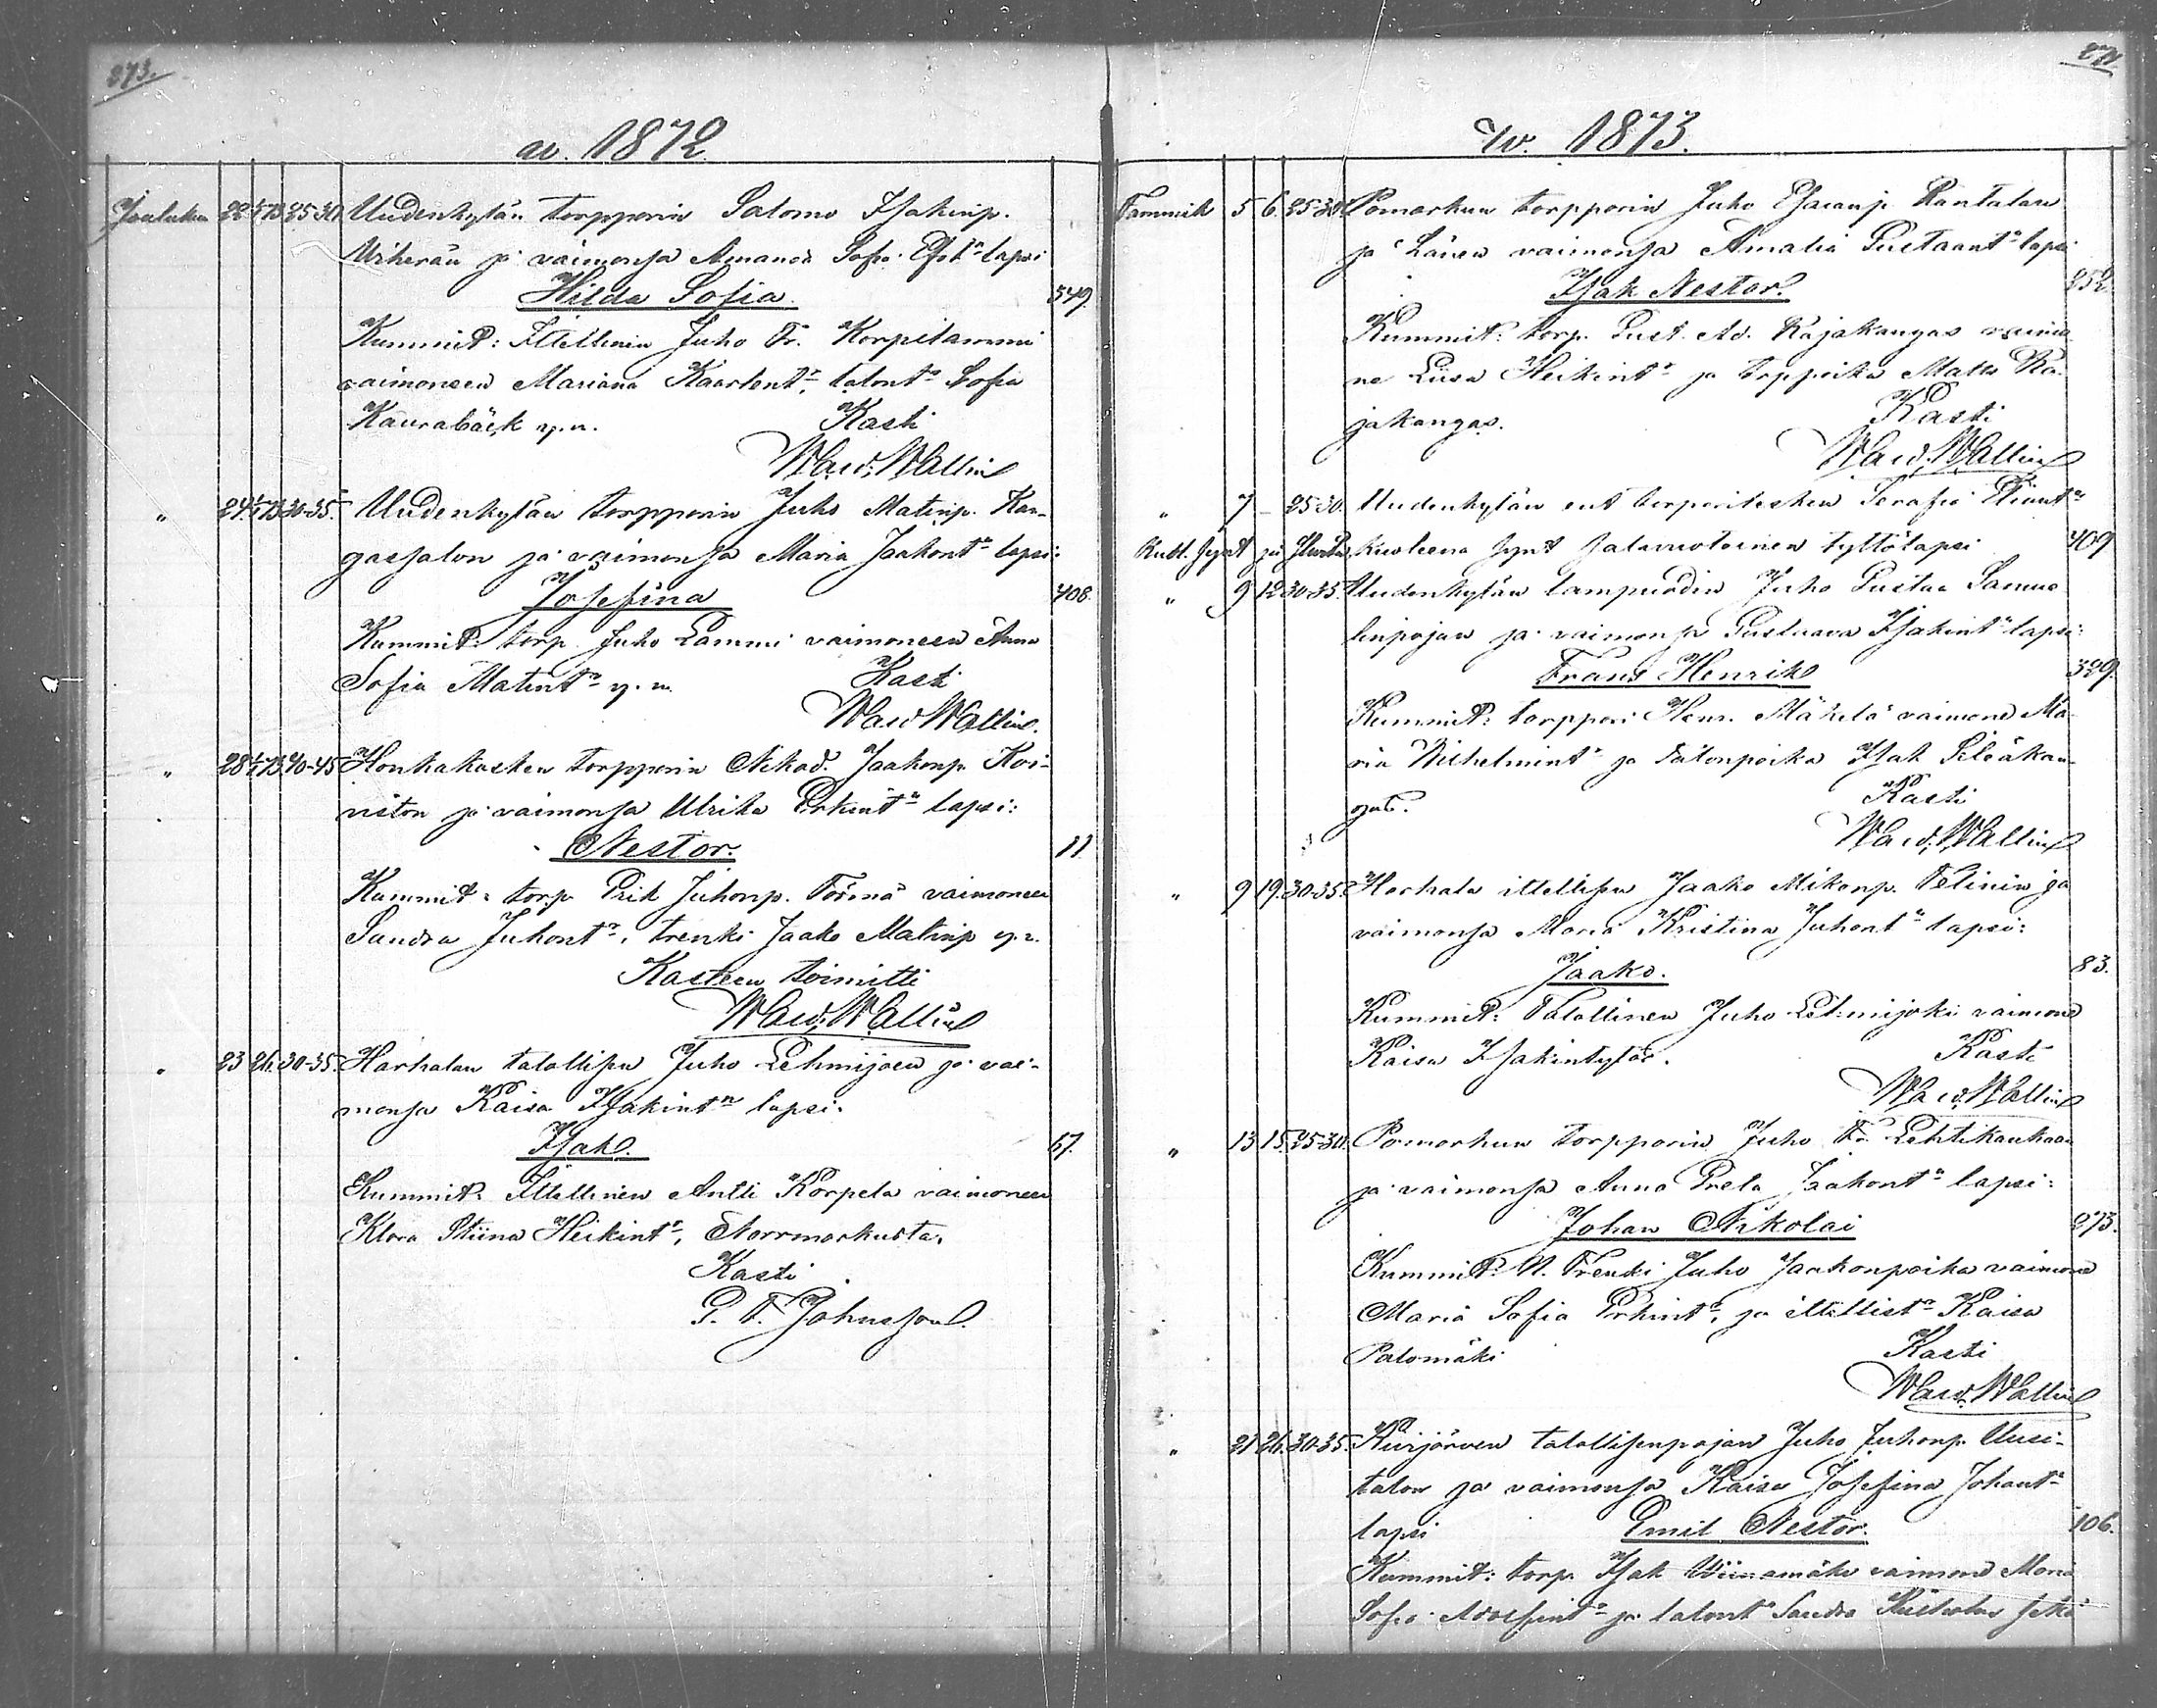 273.
w. 1872.
Jouluku 22 1/1 73 25-30 Uudenkylän torpparin Salomo Isakinp.
Viherän ja vaimonsa Amanda Sofia Efr.tn lapsi
Hilda Sofia 549.
Kummit: Itellinen Juho Fr. Korpilammi
vaimoneen Mariana Kaarlentr, talontr Sofia
Kaurabäck y.n. Kasti
Wald. Wallin
" 24 1/1 73 30-35. Uudenkylän torpparin Juho Matinp. Kan-
gassalon ja vaimonsa Maria Jaakontn lapsi:
Josefina 408.
Kummit: torp. Juho Lammi vaimoneen Anna
Sofia Matintr y.n. Kasti
Wald Wallin.
" 28 1/1 73 40-45 Honkakosken torpparin Nikod. Jaakonp. Koi-
viston ja vaimonsa Ulrika Erkintn lapsi:
Nestor. 11
Kummit: torp. Erik Juhonp. Törmä vaimoneen
Sandra Juhontr, trenki Jaako Matinp y.n.
Kasteen toimitti
Wald. Wallin
" 23 26. 30-35. Harhalan talollisen Juho Lehmijoen ja vai-
monsa Kaisa Isakintn lapsi.
Isak. 67.
Kummit: Itellinen Antti Korpela vaimoneen
Klara Stiina Heikintr, Norrmarkusta.
Kasti
G. F. Johnsson.
274
w. 1873.
Tammik 5 6. 25-30. Pomarkun torpparin Juho Esaianp. Rantalan
ja vaimonsa Amalia Kustaantn lapsi
Isak Nestor. 252.
Kummit: torp. Kust. Ad. Rajakangas vaimo
ne Liisa Heikintr ja torp.poika Matts Ra-
jakangas. Kasti
Wald. Wallin
" 7 — 25-30. Uudenkylän ent torparilesken Serafia
Kuoll. synt ja Kuolleena synt tyttölapsi 409
" 9 12 30-35. Uudenkylän lampuodin Juho Kustaa Samue
linpojan ja vaimonsa Kustaava Isakintn lapsi:
Frans Henrik 329.
Kummit: torppari Henr. Mäkelä vaimone Ma-
ria Wilhelmintr ja talonpoika Isak Sileäkan-
gas. Kasti
Wald. Wallin
" 9 19. 30-35. Harhala itellisen Jaako Mikonp. Velinin ja
vaimonsa Maria Kristina Juhontn lapsi:
Jaako. 83.
Kummit: Talollinen Juho Lehmijoki vaimone
Kaisa Isakintytär. Kasti
Wald. Wallin
" 13 15. 25-30. Pomarkun torpparin Juho Fr. Lehtikankaan
ja vaimonsa Anna Eela Jaakontn lapsi:
Johan Nikolai 273.
Kummit: N. Trenki Juho Jaakonpoika vaimone
Maria Sofia Erkintr, ja itellistr Kaisa
Palomäki Kasti
Wald. Wallin
" 21 26. 30-35. Kivijärven talollisenpojan Juho Juhonp. Uusi-
talon ja vaimonsa Kaisa Josefina Johantr
lapsi Emil Nestor. 106.
Kummit: torp. Isak Viinamäki vaimone Maria
Sofia Adolfintr ja talontr Sandra sekä